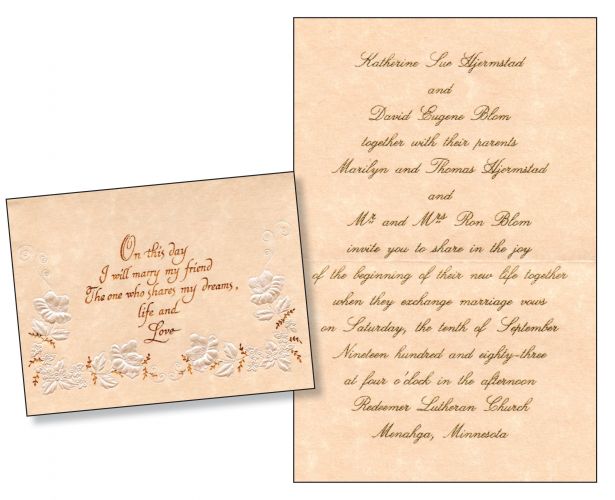 On this day
I will marry my friend
The one who shares my dreams,
life and
Love
Katherine Sue Hjermstad
and
David Eugene Blom
together with their parents
Marilyn and Thomas Hjermstad
and
Mr and Mrs Ron Blom
invite you to share in the joy
of the beginning of their new life together
when they exchange marriage vows
on Saturday, the tenth of September
Nineteen hundred and eighty-three
at four o'clock in the afternoon
Redeemer Lutheran Church
Menahga, Minnesota